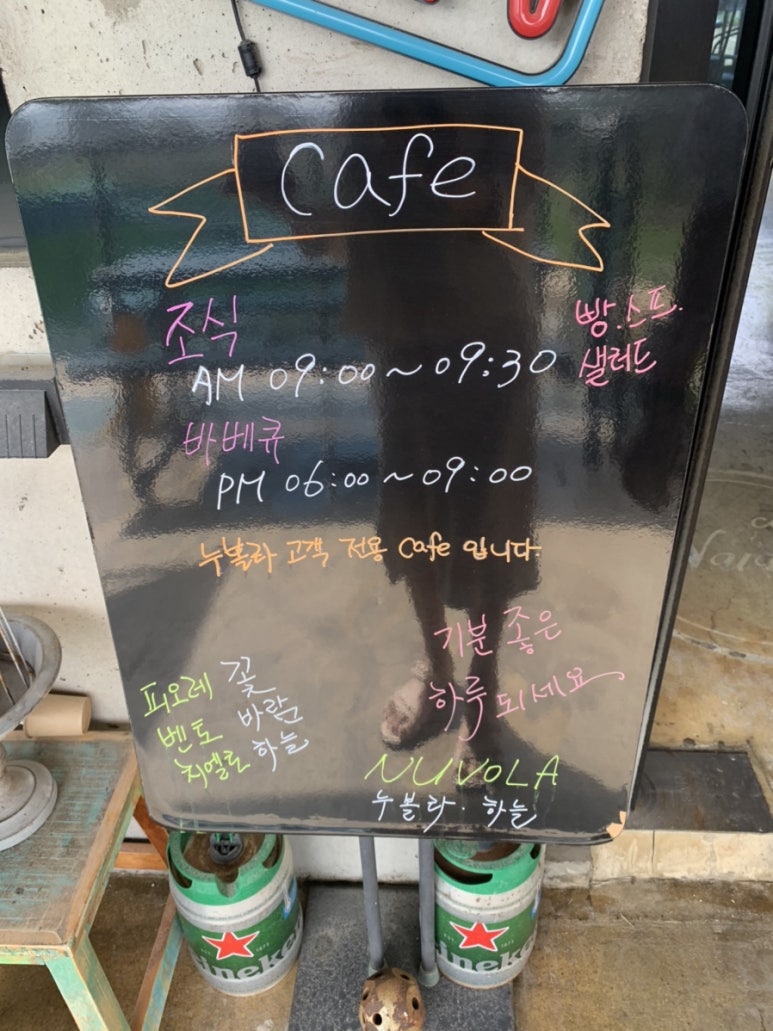 Cafe
조식
AM 09:00 ~ 09:30
빵.스프.
샐러드
바베큐
PM 06:00 ~ 09:00
누볼라 고객 전용 Cafe 입니다.
기분 좋은
하루 되세요
피오레 꽃
벤토 바람
치엘로 하늘
NUVOLA
누볼라. 하늘
Heineken